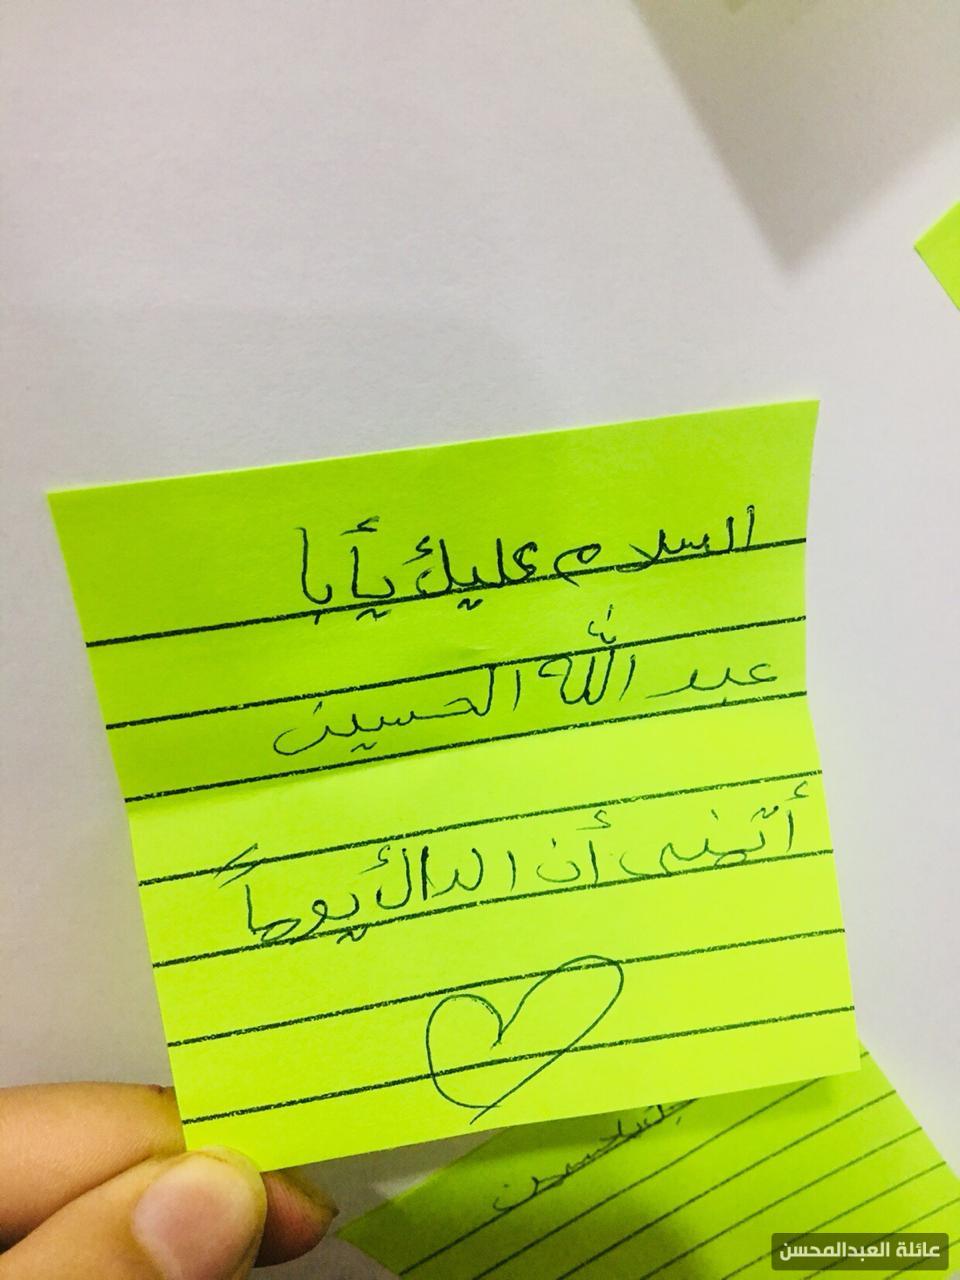 السلام عليك يأبا
عبد الله الحسين
أتمنى أن الداك يوماً
بلحسين
عائلة العبدالمحسن